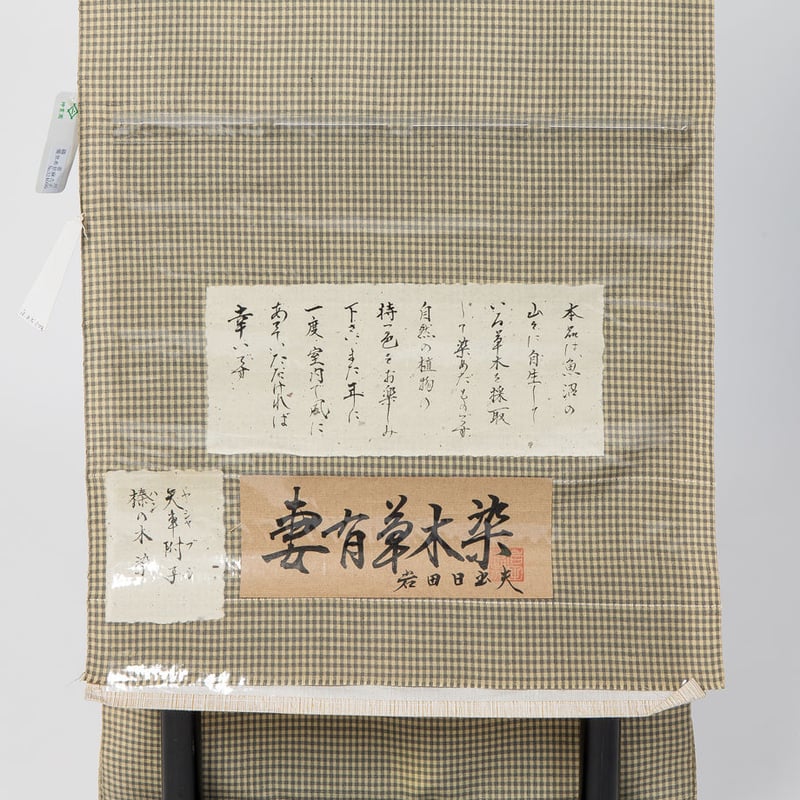 本品は魚沼の
山々に自生して
いる草木を採取
して染めたものです
自然の植物の
持つ色をお楽しみ
下さいまた年に
一度室内で風に
あてていただければ
幸いです
妻有草木染
岩田日出夫
矢車附子
ヤシャブシ
榛の木染
ハン